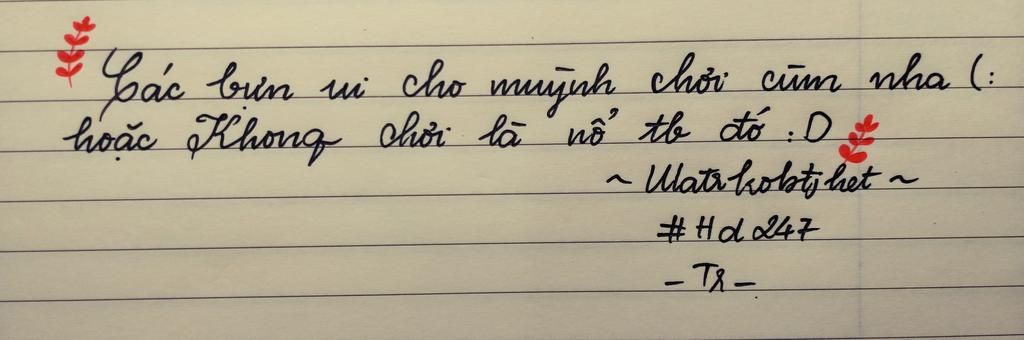 Các bựn ui cho muỳnh chơi cùm nha (:
hoặc Khong chơi là nổ tb đó :D
~ Watrkobtjhet ~
#Hd247
- Tr -